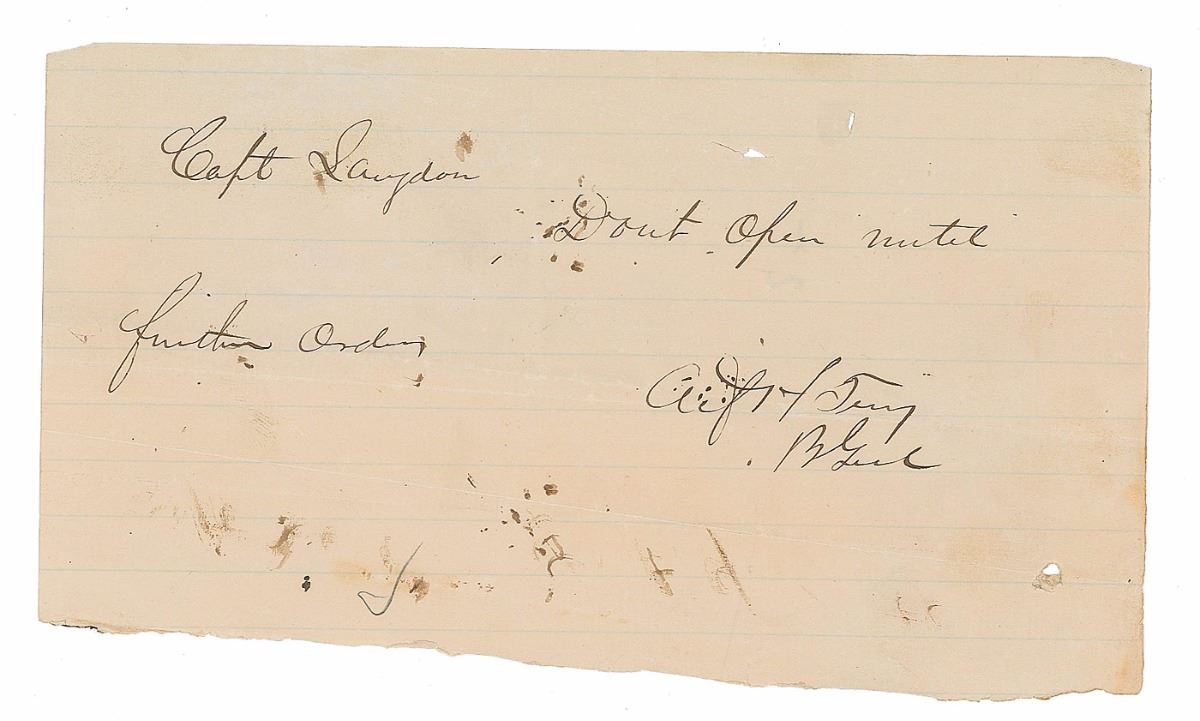 Capt Langdon
Dont Open until
further Orders
Alfd H Terry
B Genl